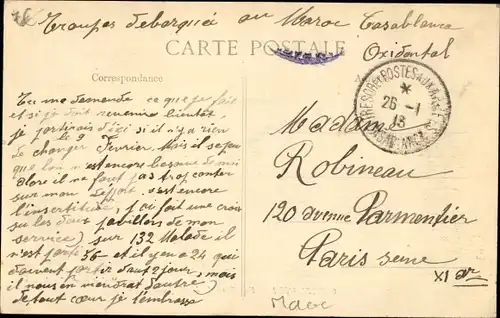 Troupes debarqué au Maroc Casablanca
Oxidental
CARTE POSTALE
Correspondance
Tu me demande ce que je fait
et si je doit revenire bientôt,
je partirais d'ici si il n'y a rien
de changer Fevrier. Mais il se peu
que l'on n'est encore besoin de moi
alore il ne faut pas trop conter
sur mon depart, c'est encore
l'insertitude, j'ai fait une croix
sur les deux pavillons de mon
service) sur 132 Malade il
n'est parti 56 et il y en a 24 qui
doivent partir d'aut 2 jour, mais
il nous en viendrat d'autre)
de tout cœur je t'embrasse
TRESOR ET POSTES AUX
*
26 - 1
13
CASABLANCA
Madame
Robineau
120 avenue Parmentier
Paris seine
XI ar
Maroc